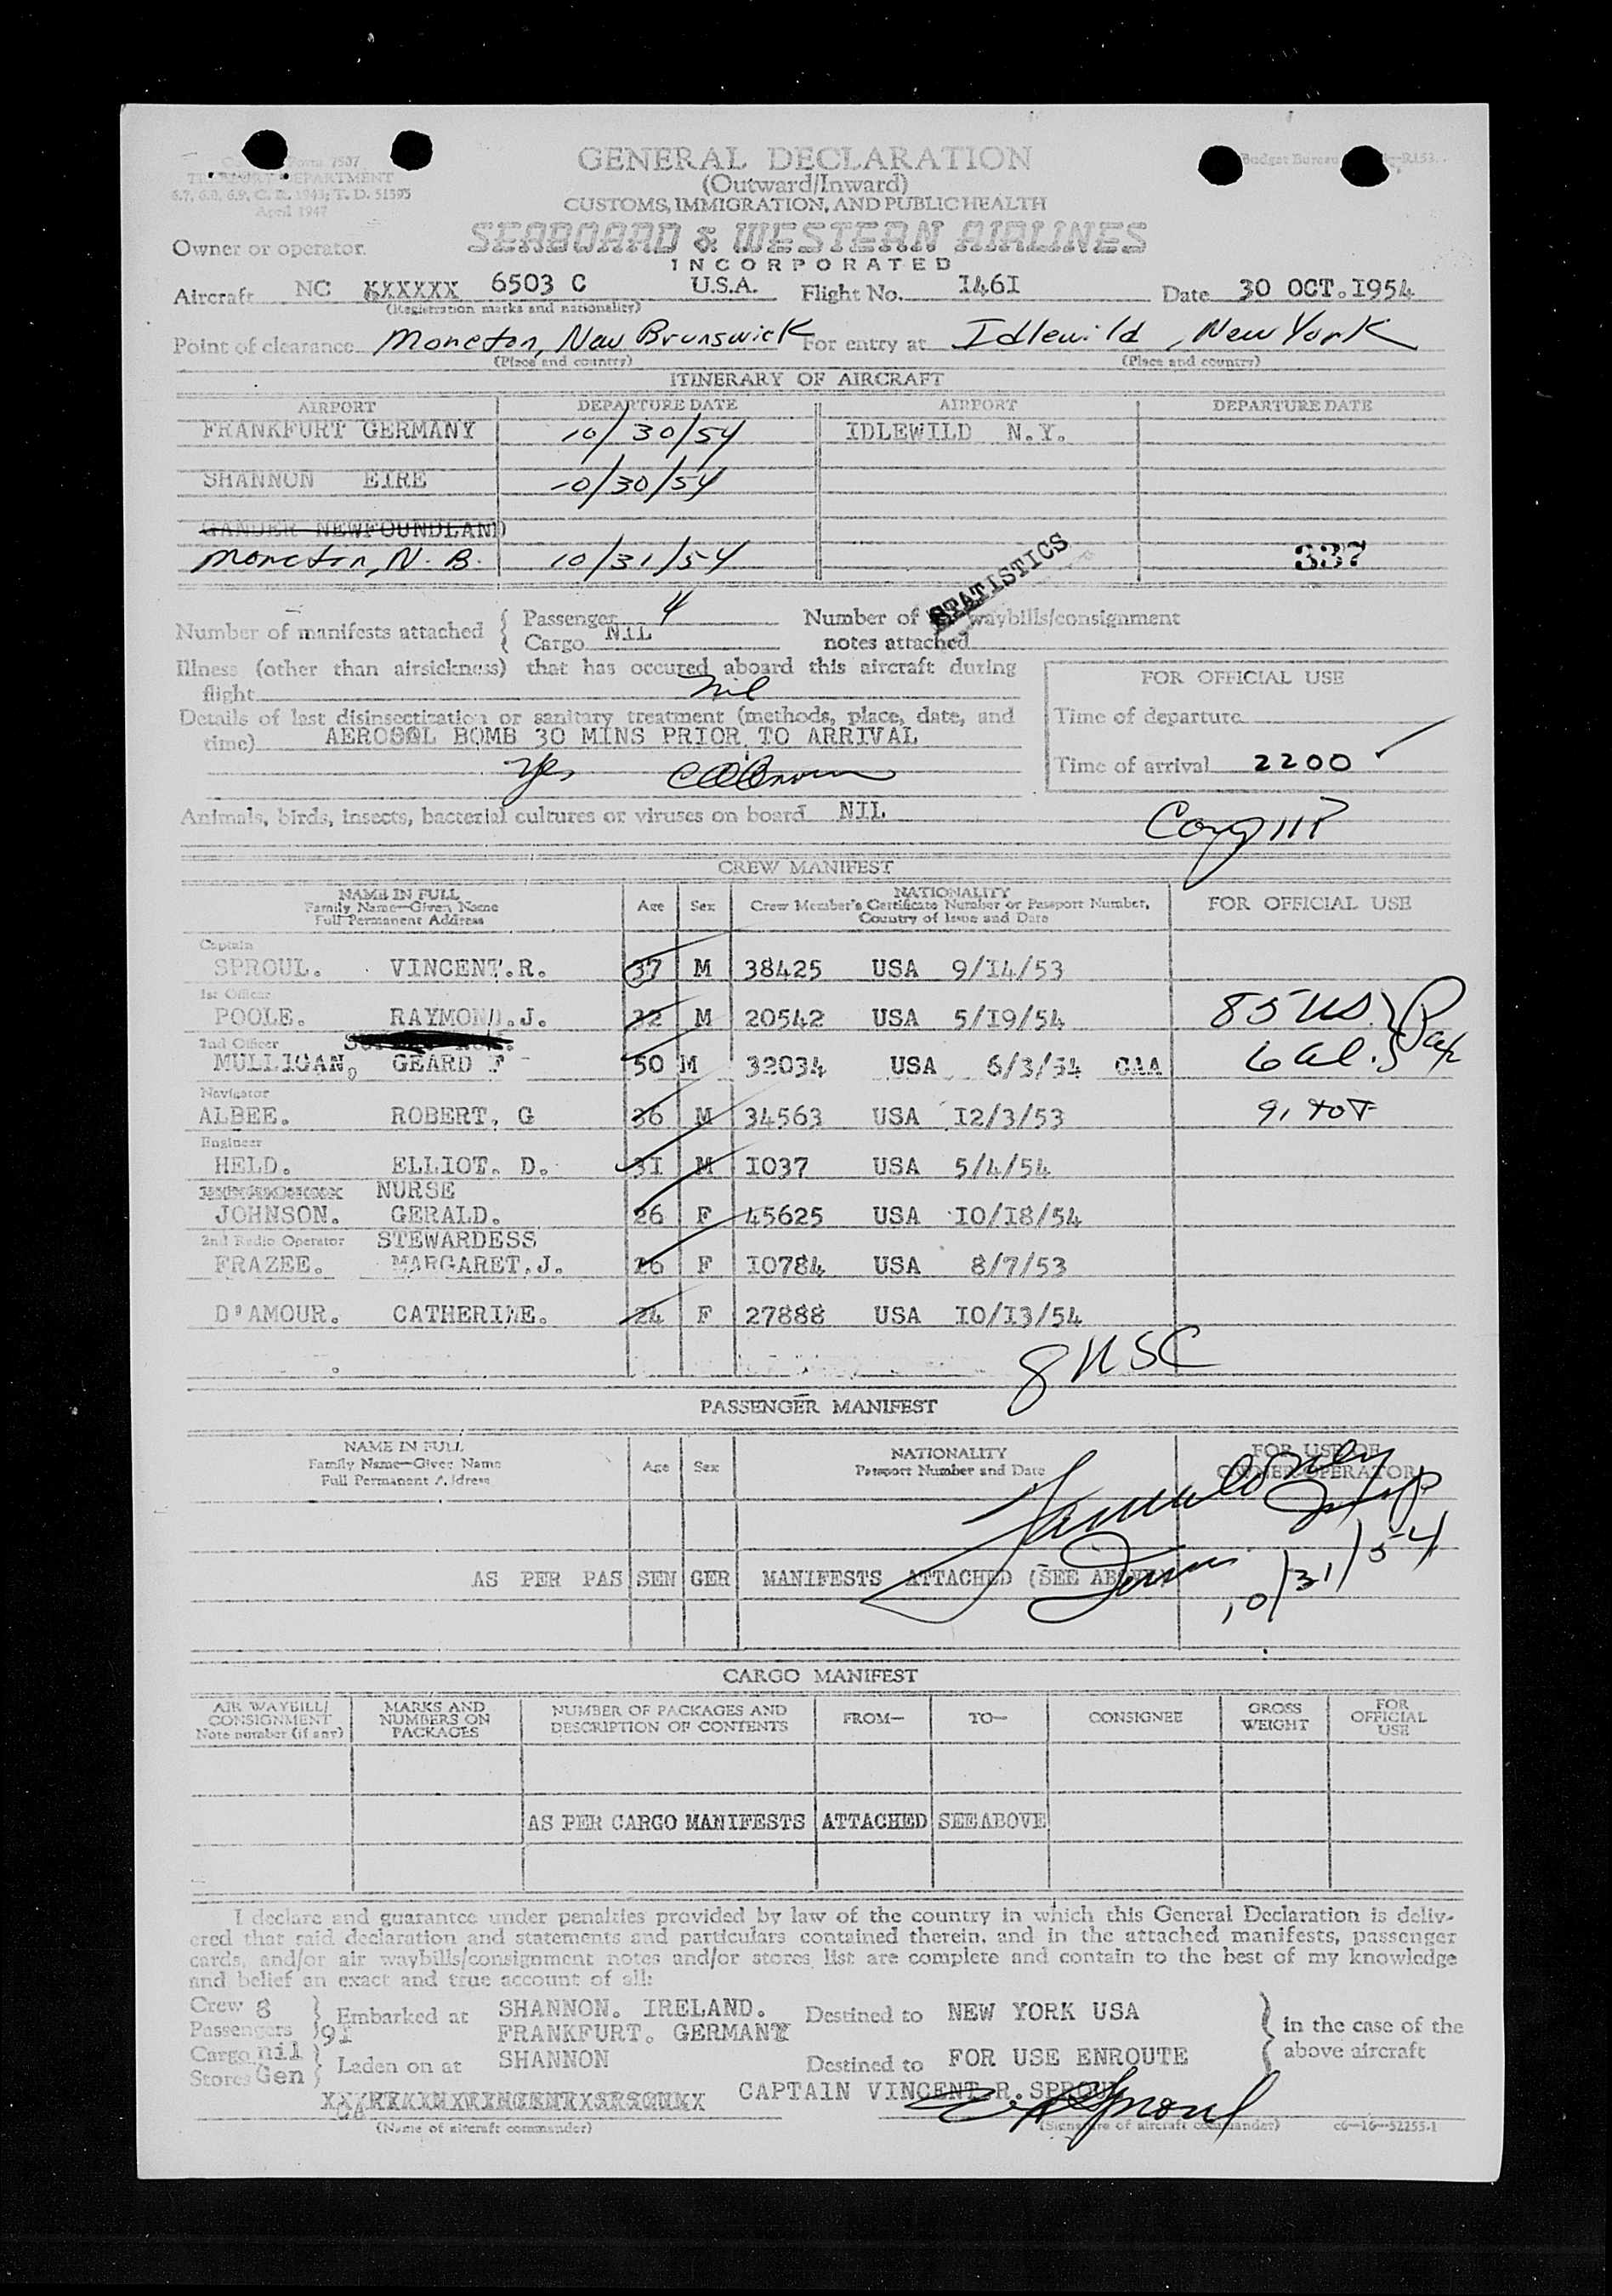 Form 7507
TREASURY DEPARTMENT
April 1947
GENERAL DECLARATION
(Outward/Inward)
CUSTOMS, IMMIGRATION, AND PUBLIC HEALTH
Budget Bureau R153
Owner or operator
SEABOARD & WESTERN AIRLINES
INCORPORATED
Aircraft NC XXXXXX 6503 C U.S.A. Flight No. I46I Date 30 OCT. I954
(Registration marks and nationality)
Point of clearance Moncton, New Brunswick For entry at Idlewild, New York
(Place and country) (Place and country)
ITINERARY OF AIRCRAFT
AIRPORT DEPARTURE DATE AIRPORT DEPARTURE DATE
FRANKFURT GERMANY 10/30/54 IDLEWILD N.Y.
SHANNON EIRE 10/30/54
GANDER NEWFOUNDLAND
Moncton, N.B. 10/31/54 337
STATISTICS
Number of manifests attached { Passenger 4 Number of waybills/consignment
Cargo NIL notes attached
Illness (other than airsickness) that has occured aboard this aircraft during
flight nil
FOR OFFICIAL USE
Details of last disinsectization or sanitary treatment (methods, place, date, and
time) AEROSOL BOMB 30 MINS PRIOR TO ARRIVAL
Time of departure
Yes
Time of arrival 2200
Animals, birds, insects, bacterial cultures or viruses on board NIL
CREW MANIFEST
NAME IN FULL
Family Name—Given Name
Full Permanent Address
Age Sex
NATIONALITY
Crew Member's Certificate Number or Passport Number,
Country of Issue and Date
FOR OFFICIAL USE
Captain
SPROUL. VINCENT.R. 37 M 38425 USA 9/I4/53
1st Officer
POOLE. RAYMOND.J. 32 M 20542 USA 5/I9/54 85 US
2nd Officer
MULLIGAN, GEARD F 50 M 32034 USA 6/3/54 CAA 6 al.
Navigator
ALBEE. ROBERT, G 36 M 34563 USA I2/3/53 91 TOT
Engineer
HELD. ELLIOT. D. 3I M I037 USA 5/4/54
NURSE
JOHNSON. GERALD. 26 F 45625 USA IO/I8/54
2nd Radio Operator STEWARDESS
FRAZEE. MARGARET.J. 26 F I0784 USA 8/7/53
D'AMOUR. CATHERINE. 24 F 27888 USA IO/I3/54
8 USC
PASSENGER MANIFEST
NAME IN FULL
Family Name—Given Name
Full Permanent Address
Age Sex
NATIONALITY
Passport Number and Date
FOR USE OF
OWNER-OPERATOR
10/31/54
AS PER PAS SEN GER MANIFESTS ATTACHED (SEE ABOVE)
CARGO MANIFEST
AIR WAYBILL/
CONSIGNMENT
Note number (if any)
MARKS AND
NUMBERS ON
PACKAGES
NUMBER OF PACKAGES AND
DESCRIPTION OF CONTENTS
FROM— TO— CONSIGNEE
GROSS
WEIGHT
FOR
OFFICIAL
USE
AS PER CARGO MANIFESTS ATTACHED SEE ABOVE
I declare and guarantee under penalties provided by law of the country in which this General Declaration is deliv-
ered that said declaration and statements and particulars contained therein, and in the attached manifests, passenger
cards, and/or air waybills/consignment notes and/or stores list are complete and contain to the best of my knowledge
and belief an exact and true account of all:
Crew 8 } Embarked at SHANNON. IRELAND. Destined to NEW YORK USA } in the case of the
Passengers 9I FRANKFURT. GERMANY
Cargo nil } Laden on at SHANNON Destined to FOR USE ENROUTE above aircraft
Stores Gen
CAPTAIN VINCENT R. SPROUL
(Name of aircraft commander) (Signature of aircraft commander) c6—16—52255-1